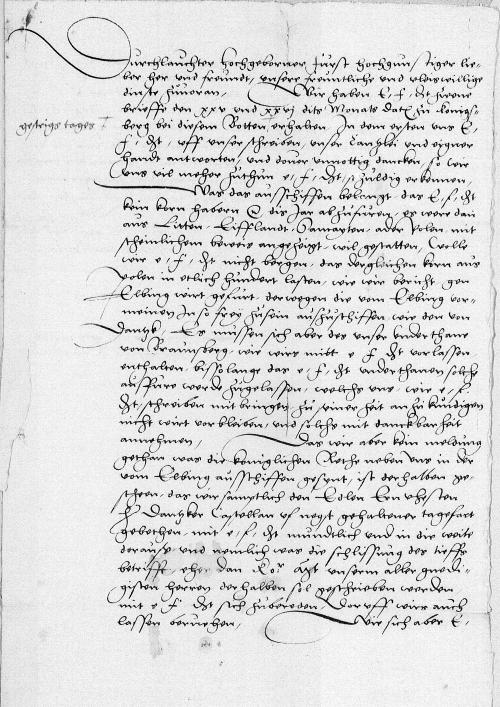 Durchlauchter Hochgeborner Furst Hochgunstiger lie-
ber her und freundt, unsere freuntliche und vleiswillige
dinste zuvoran, Wir haben E. f. Dt zwene
brieffe den xxv und xxvj dits Monats dat. zu Konigs-
gestrigs tages
berg bei diesem Botten erhalten. In dem ersten uns E.
f. Dt uff unser schreiben, unser Canzlei und eigner
handt antworten, und doner unnottig dancken, so wir
uns vil meher zuthun e. f. Dt schuldig erkennen,
Was das ausschiffen belangt, das E. f. Dt
kein korn habern dis Jar abzufuren, es were dan
aus Litten, Eifflandt, Samayten, ader Polen, mit
scheinlichem beweis angezeigt, wil gestatten, Wolle
wir e. f. Dt nicht bergen, das dergleichen korn aus
polen in etlich hundert lasten, wie wir bericht, gen
Elbing wirt gefurt, derwegen die vom Elbing vor-
meinen so frey zusein auszuschiffen, wie den von
Dantzk, Es mussen sich aber des unser underthane
von Braunsberg, wie wirs mitt e. f. Dt verlassen
enthalten, bissolange das e. f. Dt underthanen solche
ausfure werde zugelassen, welchs uns, wie e. f.
Dt schreiben mit bringen, zu seiner zeit anzukundigen
nicht wirt vorbleiben, und solchs mit danckbarheit
annehmen, Das wir aber kein meldung
gethan was die koniglichen Rethe neben uns in der
vom Elbing ausschiffen gesynt, ist derhalben ge-
scheen, das wir samptlich den Edlen Ernvhesten
H. Dantzker Castellan uf negst gehaltener tagefart
gebethen, mit e. f. Dt mundtlich und in die weite
daraus und nemlich was die schlissung des tieffs
betrifft, eher dan Ko. Mat unserm aller gnedi-
gisten herren derhalben sol geschrieben werden
mit e. f. Dt sich zubereden, Doruff wirs auch
lassen beruehen, Wie sich aber E.